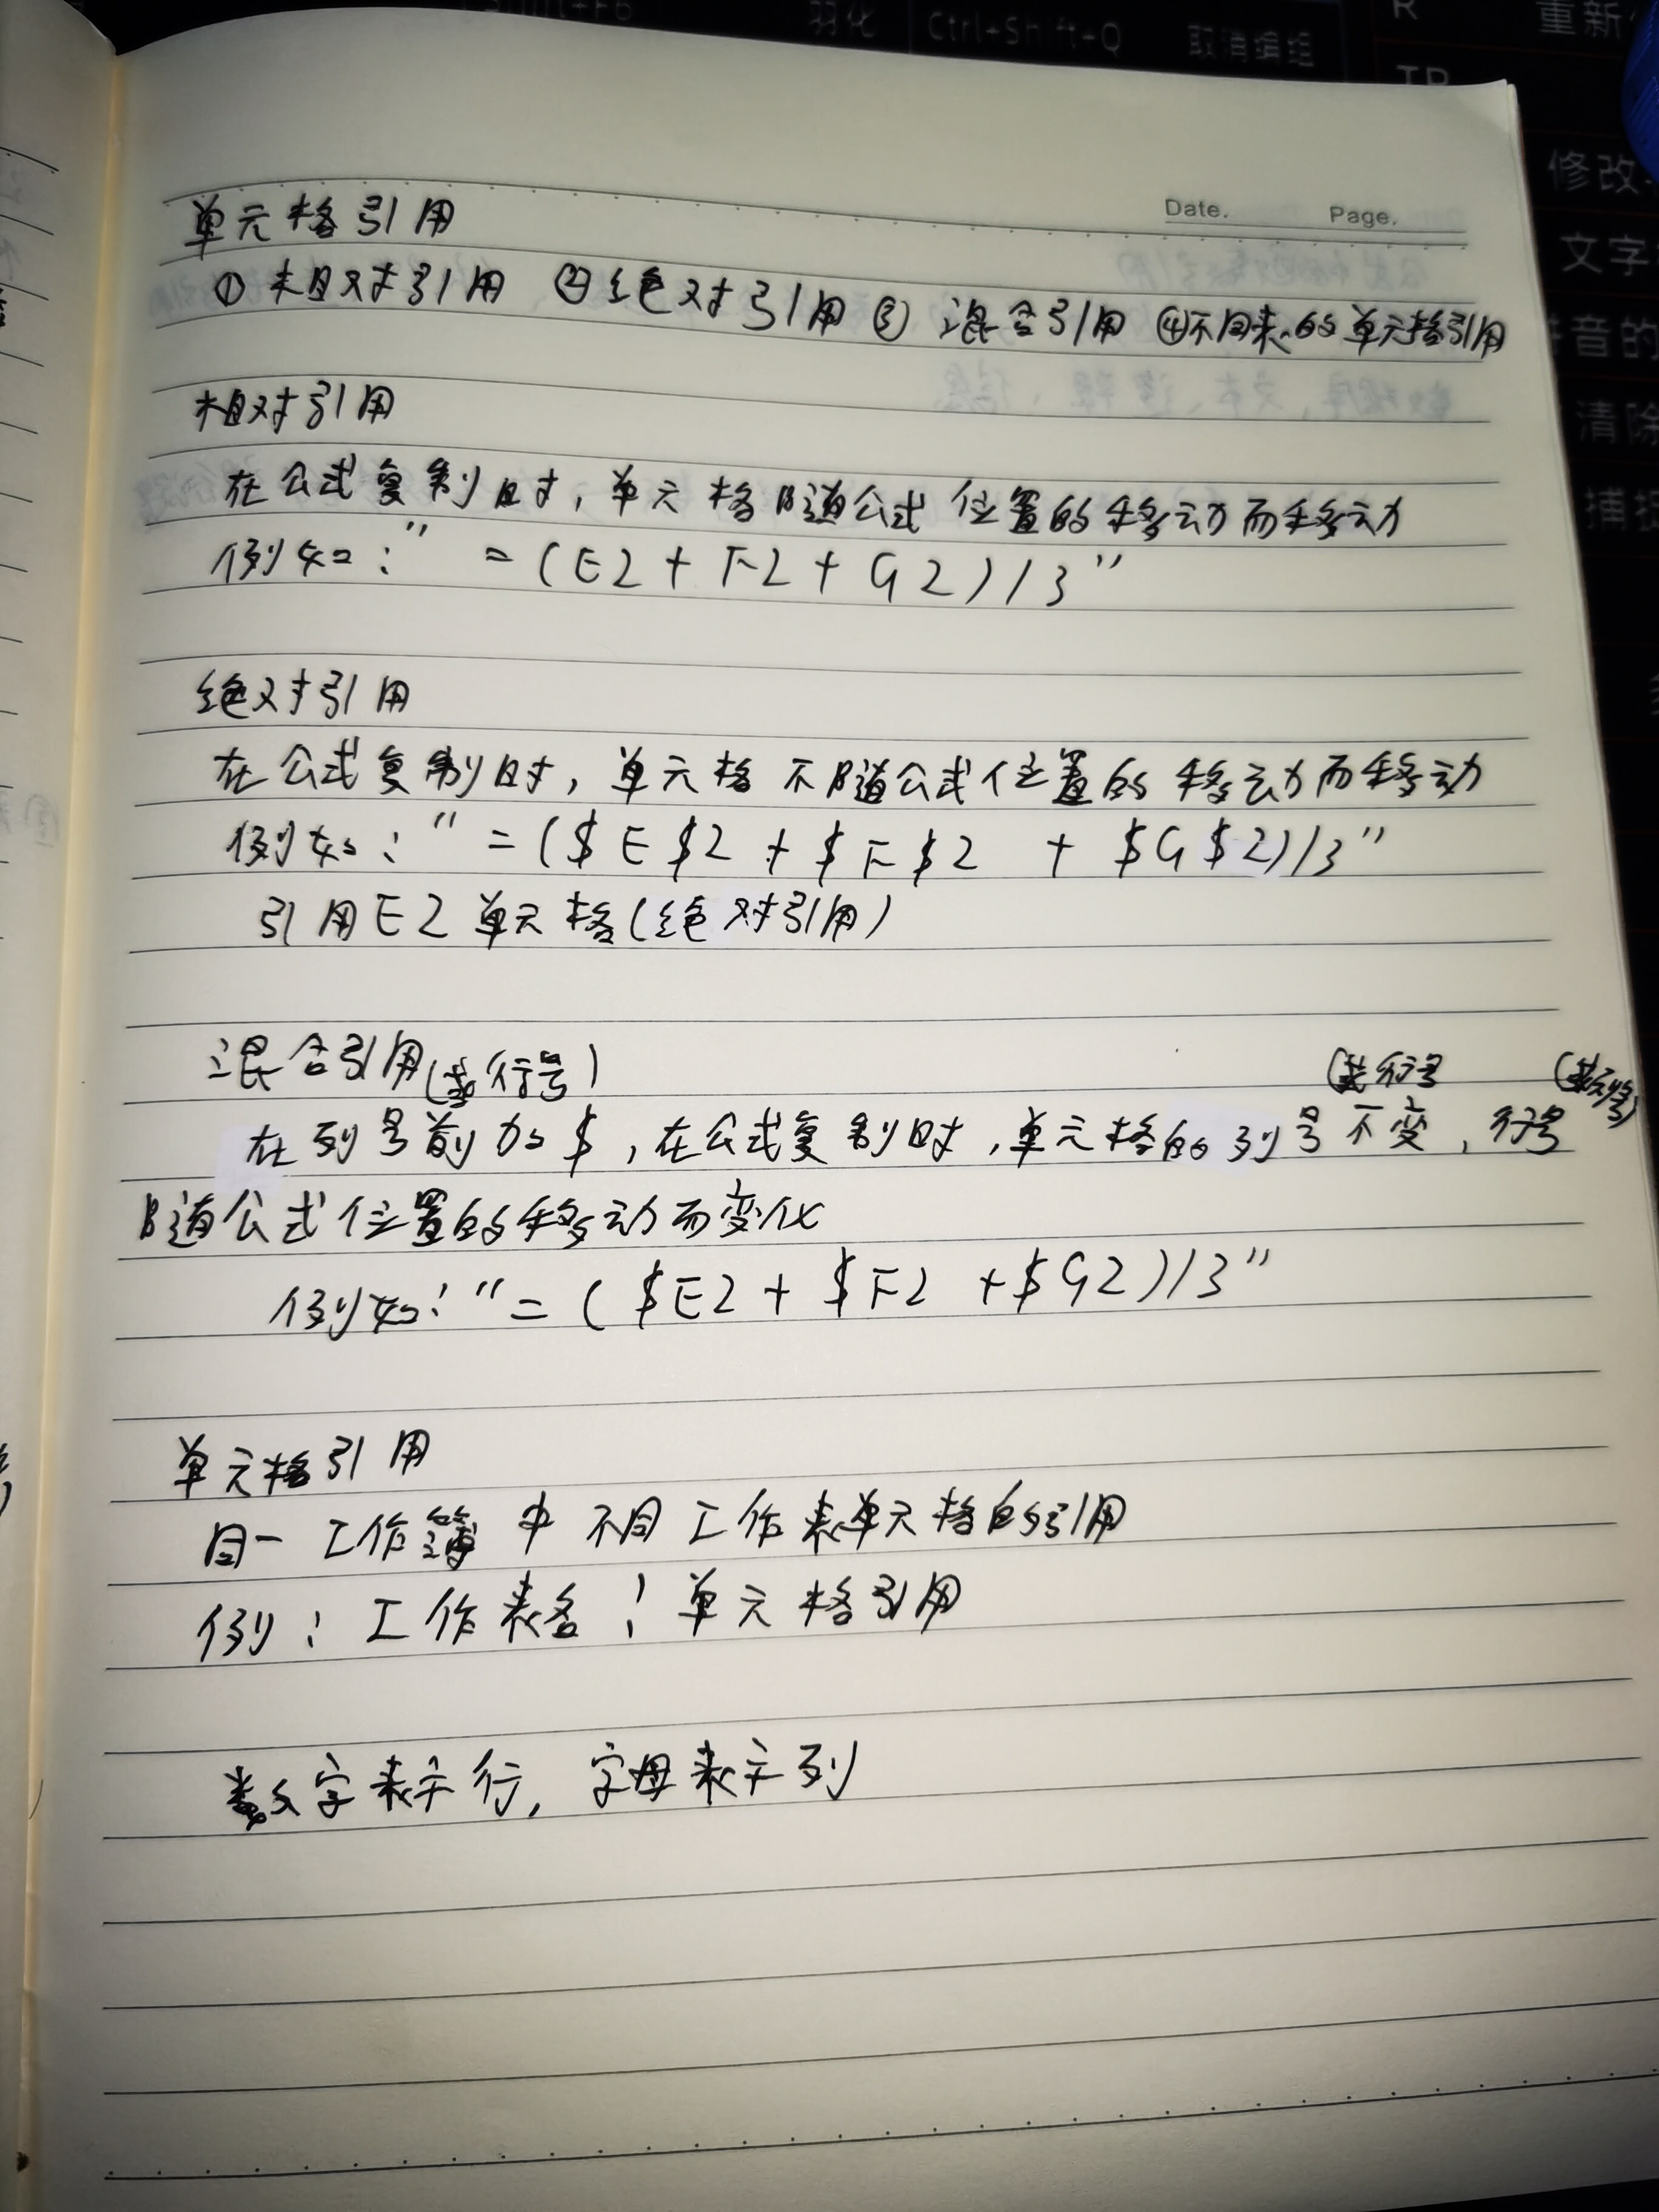 Ctrl+Shift+Q
羽化
取消编组
R
重新
修改
文字
拼音的
清除
Date.
Page.
单元格引用
① 相对引用 ②绝对引用 ③ 混合引用 ④不同表的单元格引用
相对引用
在公式复制时，单元格随公式位置的移动而移动
例如：" =(E2+F2+G2)/3"
绝对引用
在公式复制时，单元格不随公式位置的移动而移动
例如："=($E$2+$F$2 +$G$2)/3"
引用E2单元格(绝对引用)
混合引用(或行号)
(或行号 (或列号)
在列号前加$,在公式复制时,单元格的列号不变,行号
随公式位置的移动而变化
例如："=($E2+$F2 +$G2)/3"
单元格引用
同一工作簿中不同工作表单元格的引用
例：工作表名！单元格引用
数字表示行,字母表示列